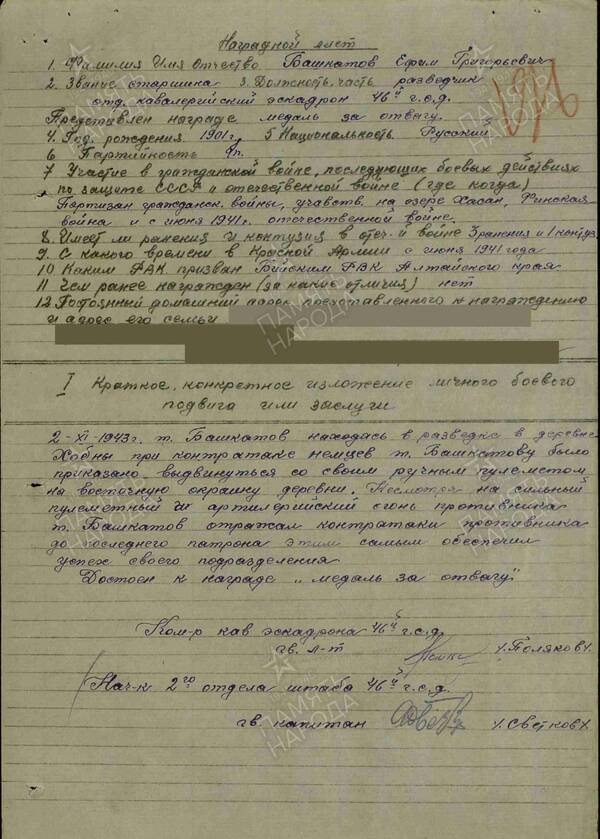 Наградной лист
1. Фамилия Имя Отчество Башкатов Ефим Григорьевич
2. Звание старшина 3. Должность, часть разведчик
отд. кавалерийский эскадрон 46й г.с.д.
Представлен награде медаль за отвагу.
4. Год. рождения. 1901 г. 5 Национальность Русский
6 Партийность
7 Участие в гражданской войне, последующих боевых действиях
по защете СССР и отечественной войне (где когда)
Партизан гражданск. войны, участв. на озере Хасан, Финская
война и с июня 1941 г. отечественной войне.
8. Имеет ли ранения и контузия в отеч-й войне 3 ранения и 1 контуз.
9. С какого времени в Красной Армии с июня 1941 года
10 Каким РВК призван Бийским РВК Алтайского края
11 Чем ранее награжден (за какие отличия) нет
12. Постоянний домашний адрес представленного к награждению
и адрес его семьи
I Краткое, конкретное изложение личного боевого
подвига или заслуги
2-XI-1943 г. т. Башкатов находясь в разведке в деревне
Хобны при контратаке немцев т. Башкатову было
приказано выдвинуться со своим ручным пулеметом
на восточную окраину деревни. Несмотря на сильный
пулеметный и артилерийский огонь противника
т. Башкатов отражал контратаки противника
до последнего патрона этим самым обеспечил
успех своего подразделения
Достоен к награде „медаль за отвагу"
Ком-р кав эскадрона 46й г.с.д.
гв. л-т /Поляков/
Нач-к 2го отдела штаба 46й г.с.д.
гв. капитан /Светков/
ПАМЯТЬ НАРОДА